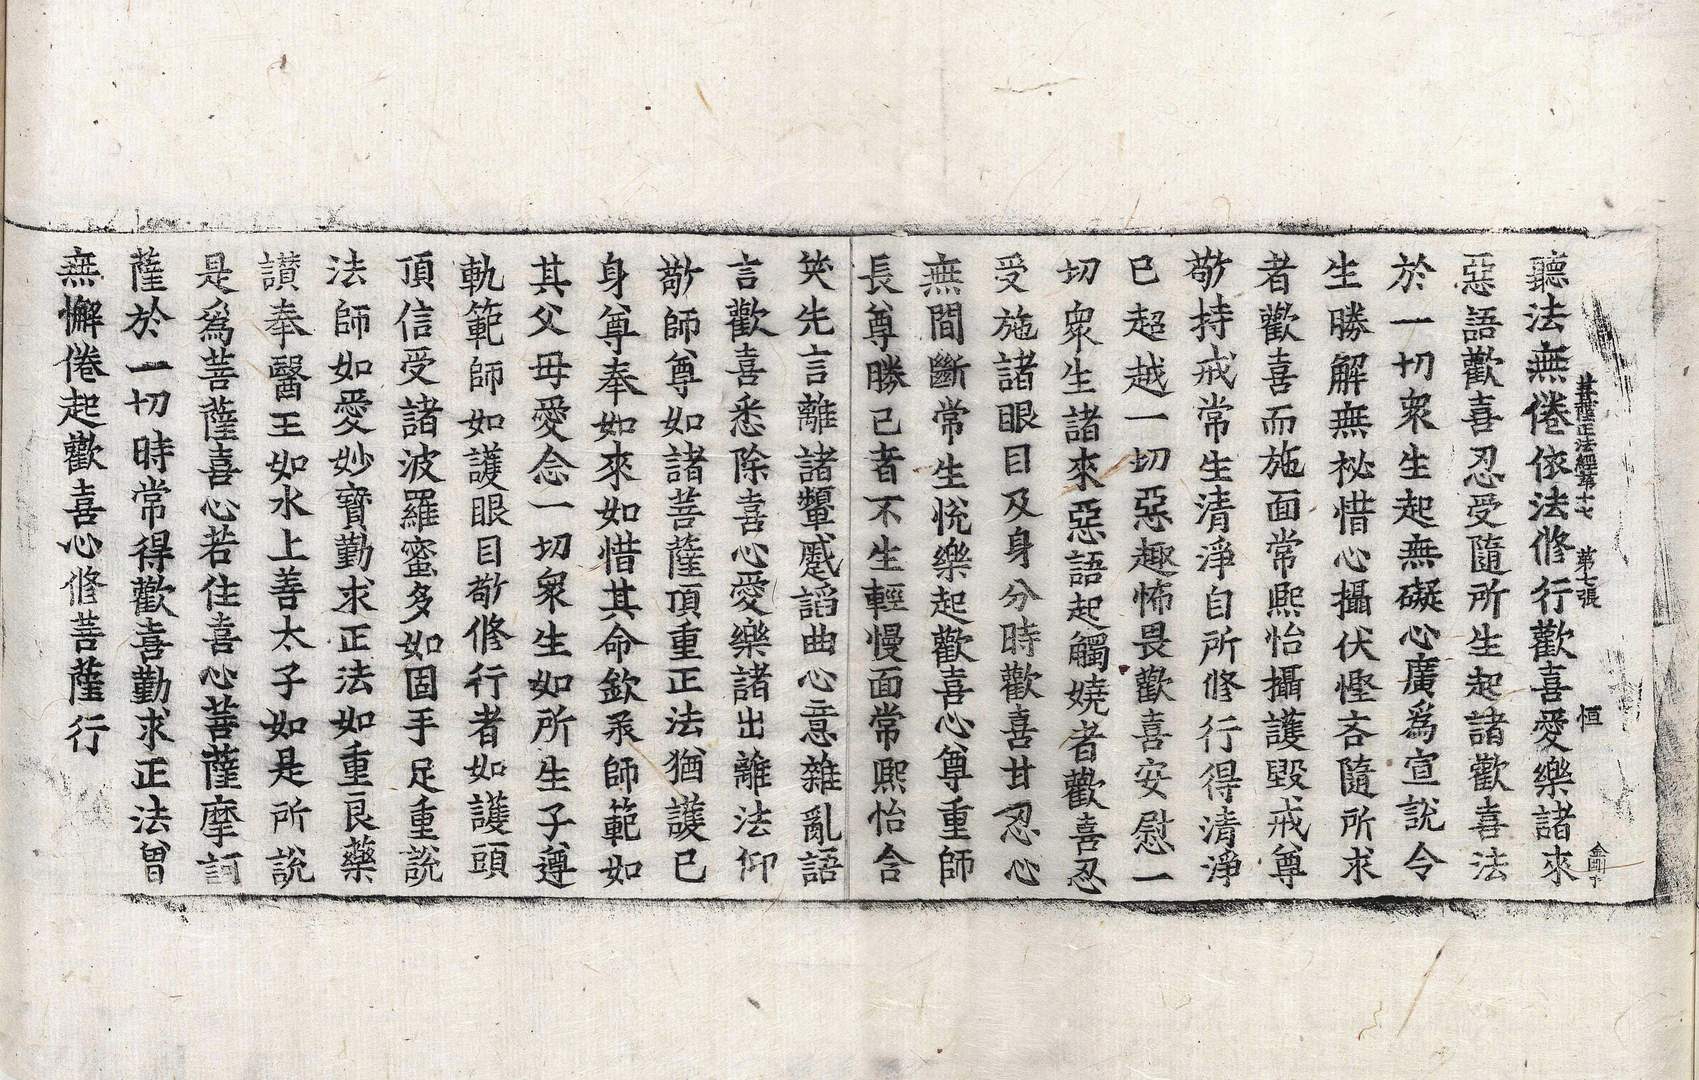 菩薩正法經第十七 第七張 恒 金剛子
聽法無倦依法修行歡喜愛樂諸來
惡語歡喜忍受隨所生起諸歡喜法
於一切衆生起無礙心廣爲宣說令
生勝解無祕惜心攝伏慳吝隨所求
者歡喜而施面常熙怡攝護毀戒尊
敬持戒常生清淨自所修行得清淨
已超越一切惡趣怖畏歡喜安慰一
切衆生諸來惡語起觸嬈者歡喜忍
受施諸眼目及身分時歡喜甘忍心
無間斷常生悅樂起歡喜心尊重師
長尊勝己者不生輕慢面常熙怡含
笑先言離諸顰蹙謟曲心意雜亂語
言歡喜悉除喜心愛樂諸出離法仰
敬師尊如諸菩薩頂重正法猶護己
身尊奉如來如惜其命欽承師範如
其父母愛念一切衆生如所生子遵
軌範師如護眼目敬修行者如護頭
頂信受諸波羅蜜多如固手足重說
法師如愛妙寶勤求正法如重良藥
讃奉醫王如水上善太子如是所說
是爲菩薩喜心若住喜心菩薩摩訶
薩於一切時常得歡喜勤求正法曾
無懈倦起歡喜心修菩薩行